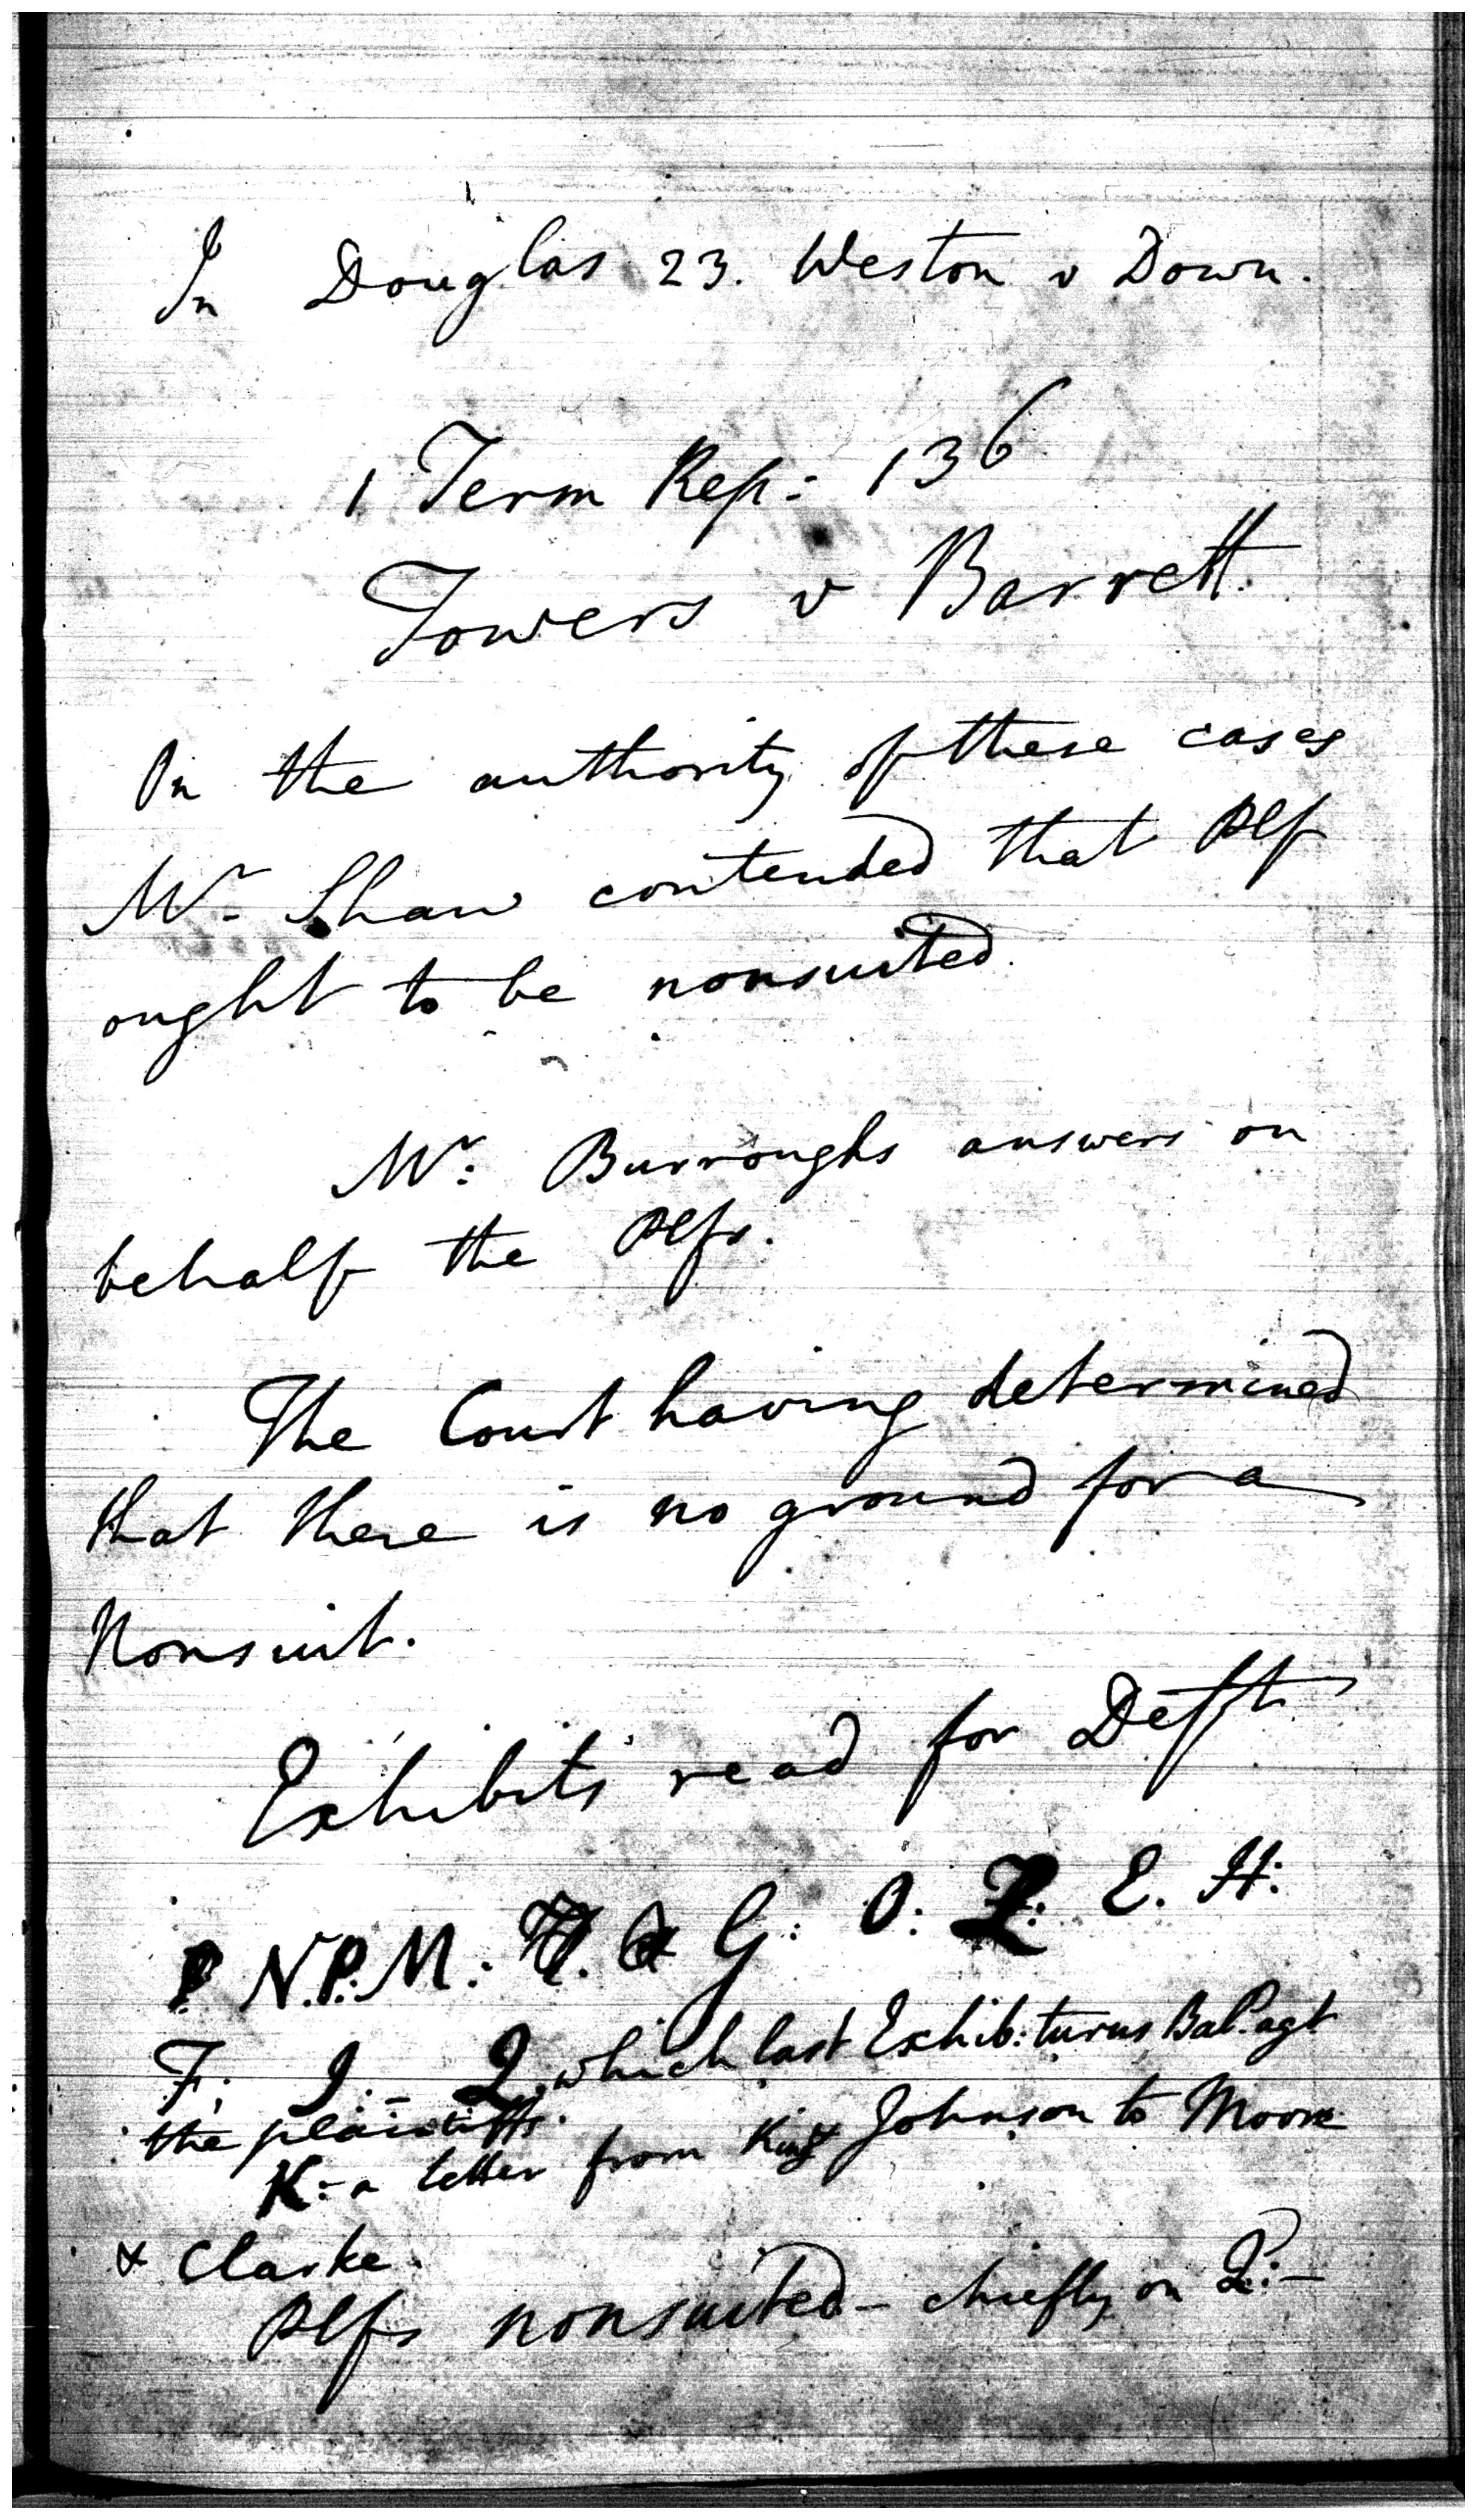 In Douglas 23. Weston v Down.
1 Term Rep: 136
Towers v Barrett.
On the authority of these cases
Mr Shaw contended that Plf
ought to be nonsuited.
Mr: Burroughs answers on
behalf the Plfs.
The Court having determined
that there is no ground for a
Nonsuit.
Exhibits read for Defft
N.P.M: G: O: L: E. H:
F; I. - Q. which last Exhib: turns Bal. agt
the plaintiffs.
K: a letter from King Johnson to Moore
& Clarke.
Plfs nonsuited - chiefly on Q: -